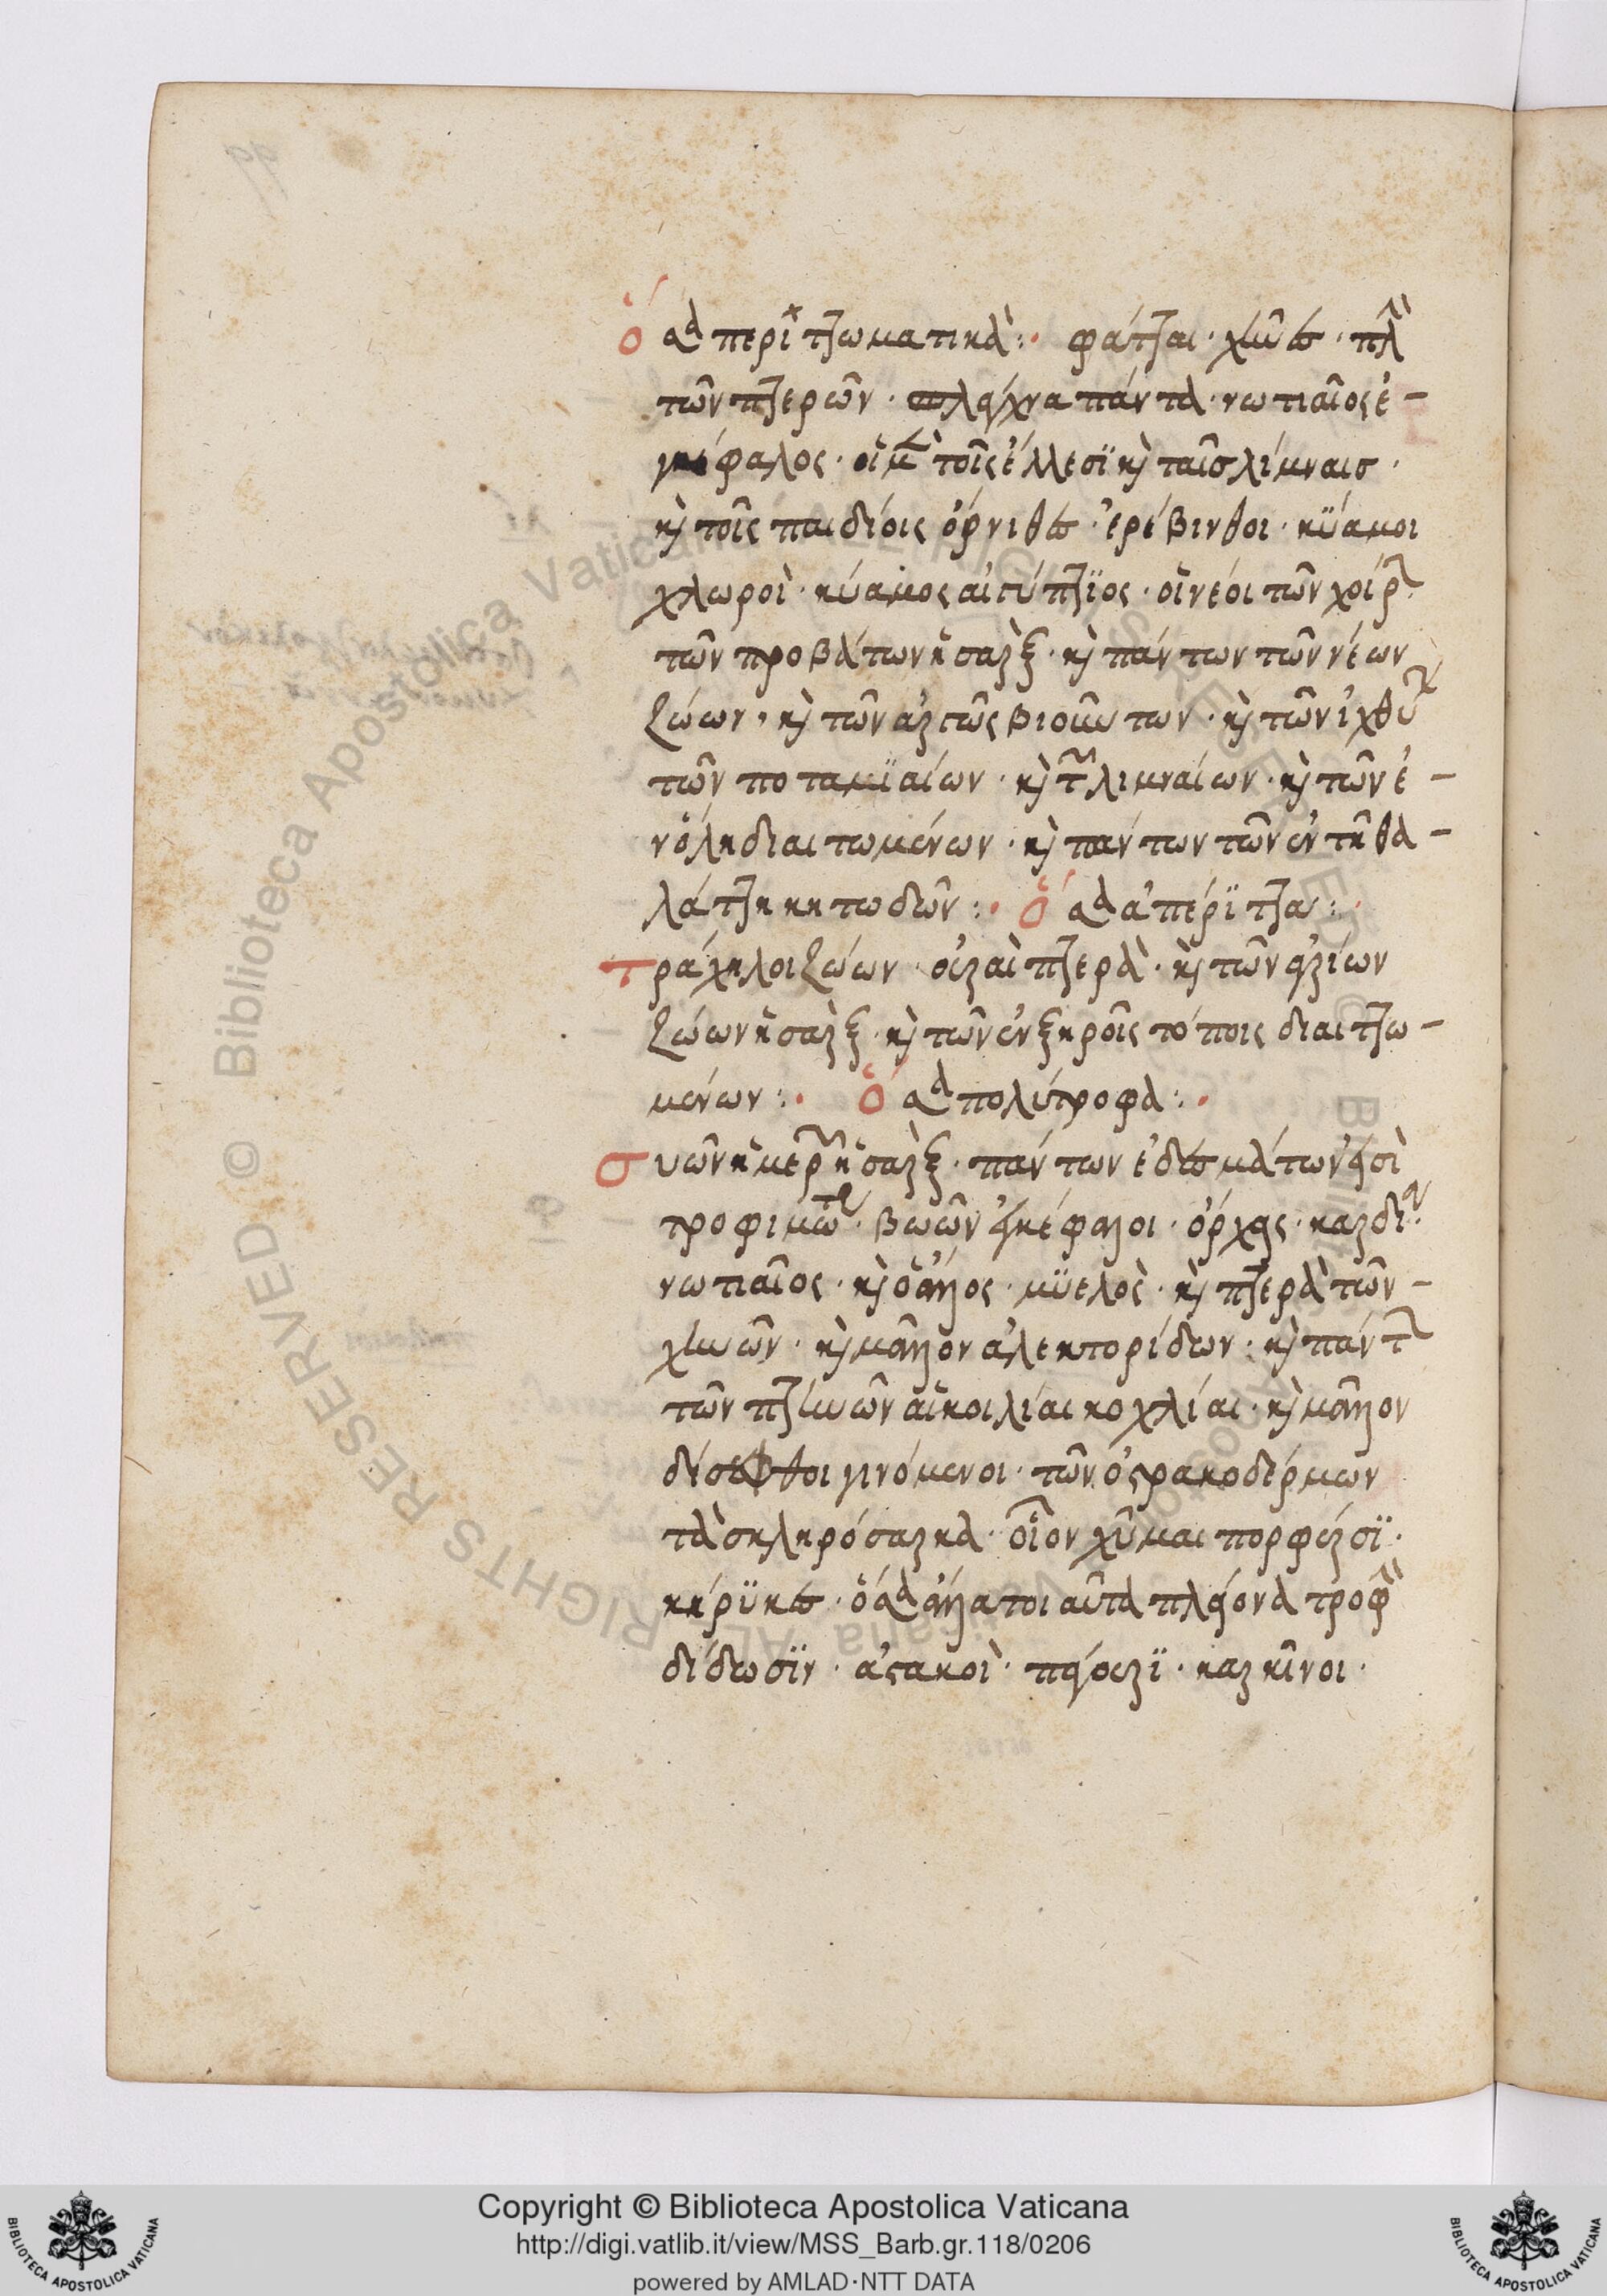 ὅσα περιττωματικά :· φάτται · χῆνες · πλὴν
τῶν πτερῶν · σπλάγχνα πάντα · νωτιαῖος ἐ –
γκέφαλος · οἱ ἐν τοῖς ἕλλεσϊ καὶ ταῖσ λίμναισ ·
καὶ τοῖς παιδίοις ὄρνιθες · ἐρέβινθοι · κϋάμοι
χλωροὶ · κύαμος αἰγύπτϊος · οἱ νέοι τῶν χοίρων
τῶν προβάτων ἡ σαρξ · καὶ πάντων τῶν νέων
ζώων · καὶ τῶν ἀργῶς βιούντων · καὶ τῶν ἰχθύων
τῶν ποταμϊαίων · καὶ τῶν λιμναίων · καὶ τῶν ἐ –
ν ὅλη διαιτωμένων · καὶ πάντων τῶν ἐν τῆ θα –
λάττη κητωδῶν :· ὅσα ἀπέρϊττα :·
τράχηλοι ζώων · οὐραὶ πτερὰ · καὶ τῶν ἀγρίων
ζώων ἡ σαρξ · καὶ τῶν ἐν ξηροῖς τόποις διαιττω –
μένων :· ὅσα πολύτροφα :·
συῶν ἡμερῶν ἡ σαρξ · πάντων ἐδεσμάτων ἐστὶ
τροφιμωτέρα · βοῶν ἐγκέφαλοι · ὄρχεις · καρδία
νωτιαῖος · καὶ ὁ ἄλλος · μϋελὸς · καὶ πτερὰ τῶν –
χηνῶν · καὶ μᾶλλον ἀλεκτορίδων · καὶ πάντων
τῶν πτηνῶν αἱ κοιλίαι κοχλίαι · καὶ μᾶλλον
δίσεφθοι γινόμενοι · τῶν ὀστρακοδέρμων
τὰ σκληρόσαρκα · οἷον χῆμαι πορφύραϊ ·
κήρϋκες · ὅσα ἄλλα τοιαῦτα πλείονα τροφὴν
δίδωσϊν · ἀστακοὶ · πάγουροϊ · καρκῖνοι ·
Copyright © Biblioteca Apostolica Vaticana
http://digi.vatlib.it/view/MSS_Barb.gr.118/0206
powered by AMLAD·NTT DATA